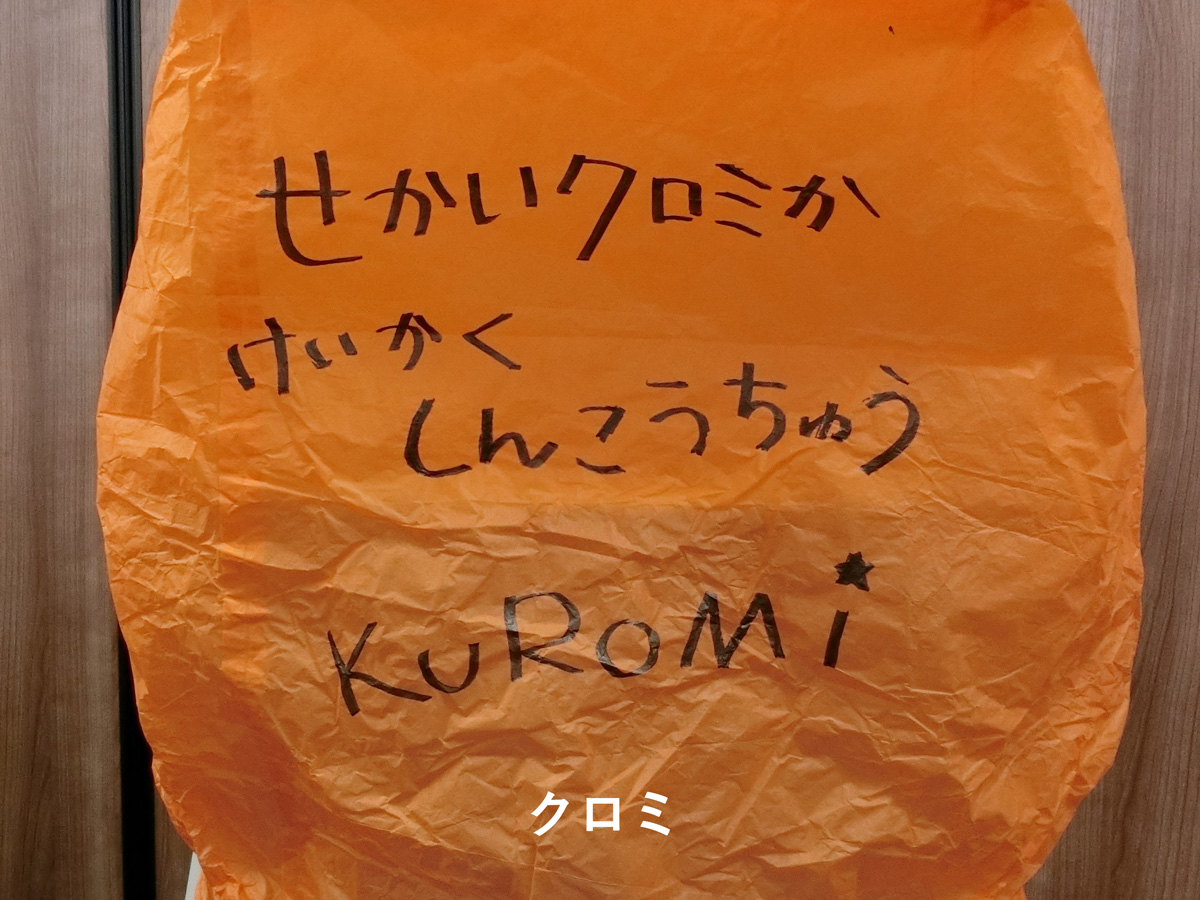 せかいクロミか
けいかく
しんこうちゅう
KuRoMi
クロミ